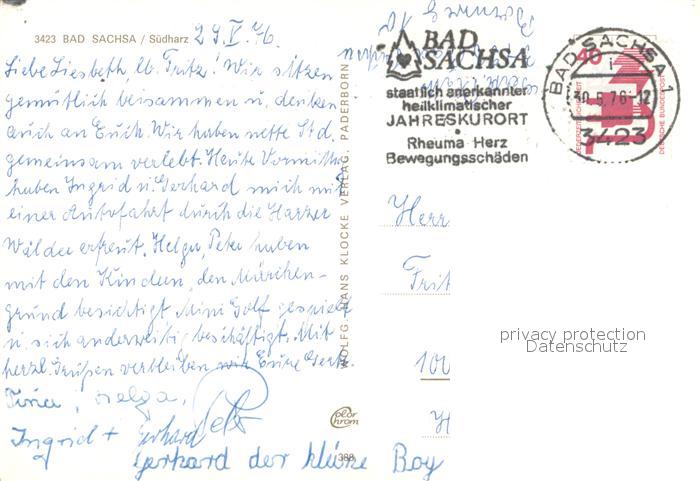 3423 BAD SACHSA / Südharz 29.V.76.
Liebe Liesbeth, lb. Fritz! Wir sitzen
gemütlich beisammen u. denken
auch an Euch. Wir haben nette Std.
gemeinsam verlebt. Heute Vormittag
haben Ingrid u. Gerhard mich mit
einer Autofahrt durch die Harzer
Wälder erfreut. Helga, Peter haben
mit den Kindern, den Märchen-
grund besichtigt Mini Golf gespielt
u. sich anderweitig beschäftigt. Mit
herzl. Grüßen verbleiben wir Eure
Helga,
Ingrid + Gerhard
Gerhard der kleine Boy
WOLFG. HANS KLOCKE VERLAG, PADERBORN
color
chrom
388
BAD
SACHSA
staatlich anerkannter
heilklimatischer
JAHRESKURORT
Rheuma Herz
Bewegungsschäden
BAD SACHSA 1
i
30.5.76-12
3423
40
JEDERZEIT SICHERHEIT
DEUTSCHE BUNDESPOST
Herr
Frit
100
H
privacy protection
Datenschutz